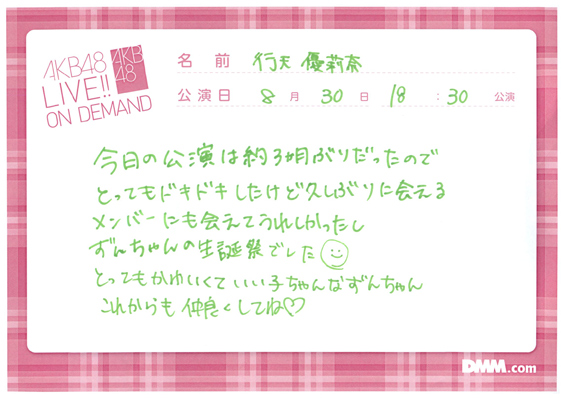 AKB48
LIVE!!
ON DEMAND
AKB
48
名前 行天 優莉奈
公演日 8月30日 18:30公演
今日の公演は約3ヶ月ぶりだったので
とってもドキドキしたけど久しぶりに会える
メンバーにも会えてうれしかったし
ずんちゃんの生誕祭でした
とってもかわいくていい子ちゃんなずんちゃん
これからも仲良くしてね♡
DMM.com